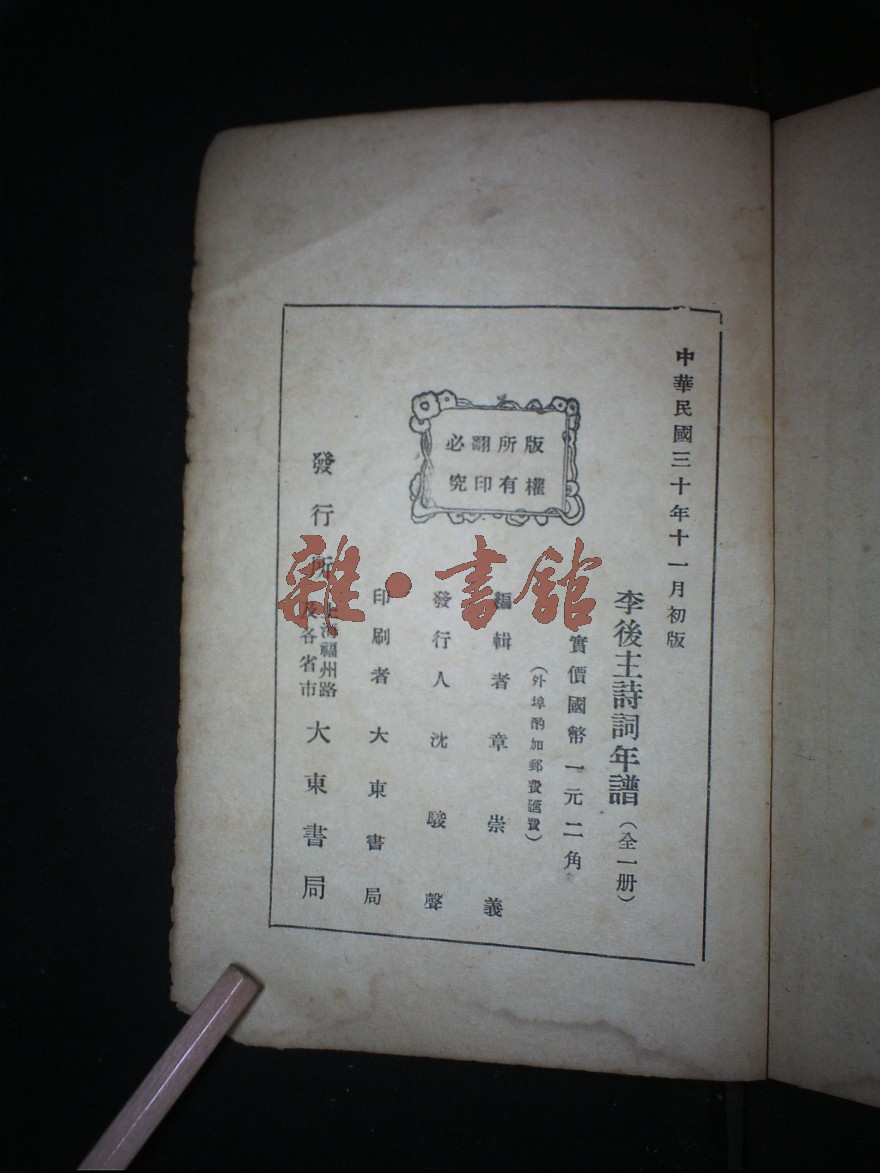 中華民國三十年十一月初版
李後主詩詞年譜（全一册）
實價國幣一元二角
（外埠酌加郵費匯費）
版權
所有
翻印
必究
編輯者章崇義
發行人沈駿聲
印刷者大東書局
發行所上海福州路及各省市大東書局
雜·書館